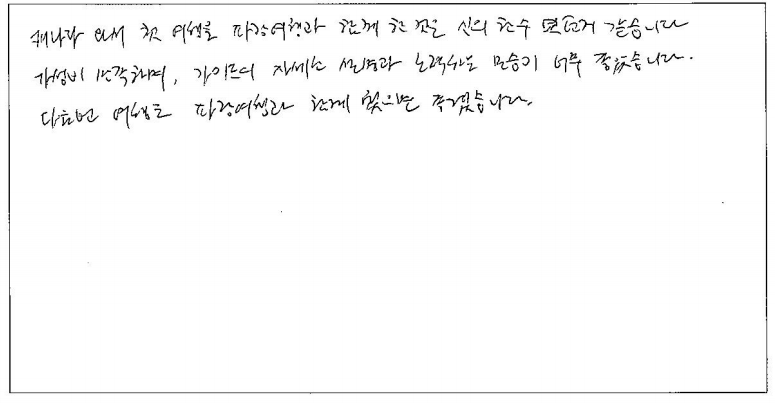 캐나다 와서 첫 여행을 파랑여행과 함께 한 것은 신의 한수 였던거 같습니다
가성비 만족하며, 가이드의 자세한 설명과 노력하는 모습이 너무 좋았습니다.
다음번 여행도 파랑여행과 함께 했으면 좋겠습니다.